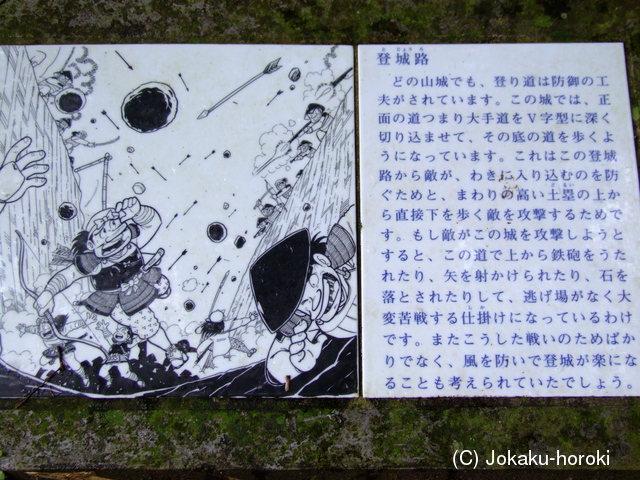 登城路
とじょうろ
どの山城でも、登り道は防御の工
夫がされています。この城では、正
面の道つまり大手道をV字型に深く
切り込ませて、その底の道を歩くよ
うになっています。これはこの登城
路から敵が、わきに入り込むのを防
ぐためと、まわりの高い土塁の上か
どるい
ら直接下を歩く敵を攻撃するためで
す。もし敵がこの城を攻撃しようと
すると、この道で上から鉄砲をうた
れたり、矢を射かけられたり、石を
落とされたりして、逃げ場がなく大
変苦戦する仕掛けになっているわけ
です。またこうした戦いのためばか
りでなく、風を防いで登城が楽にな
ることも考えられていたでしょう。
(C) Jokaku-horoki